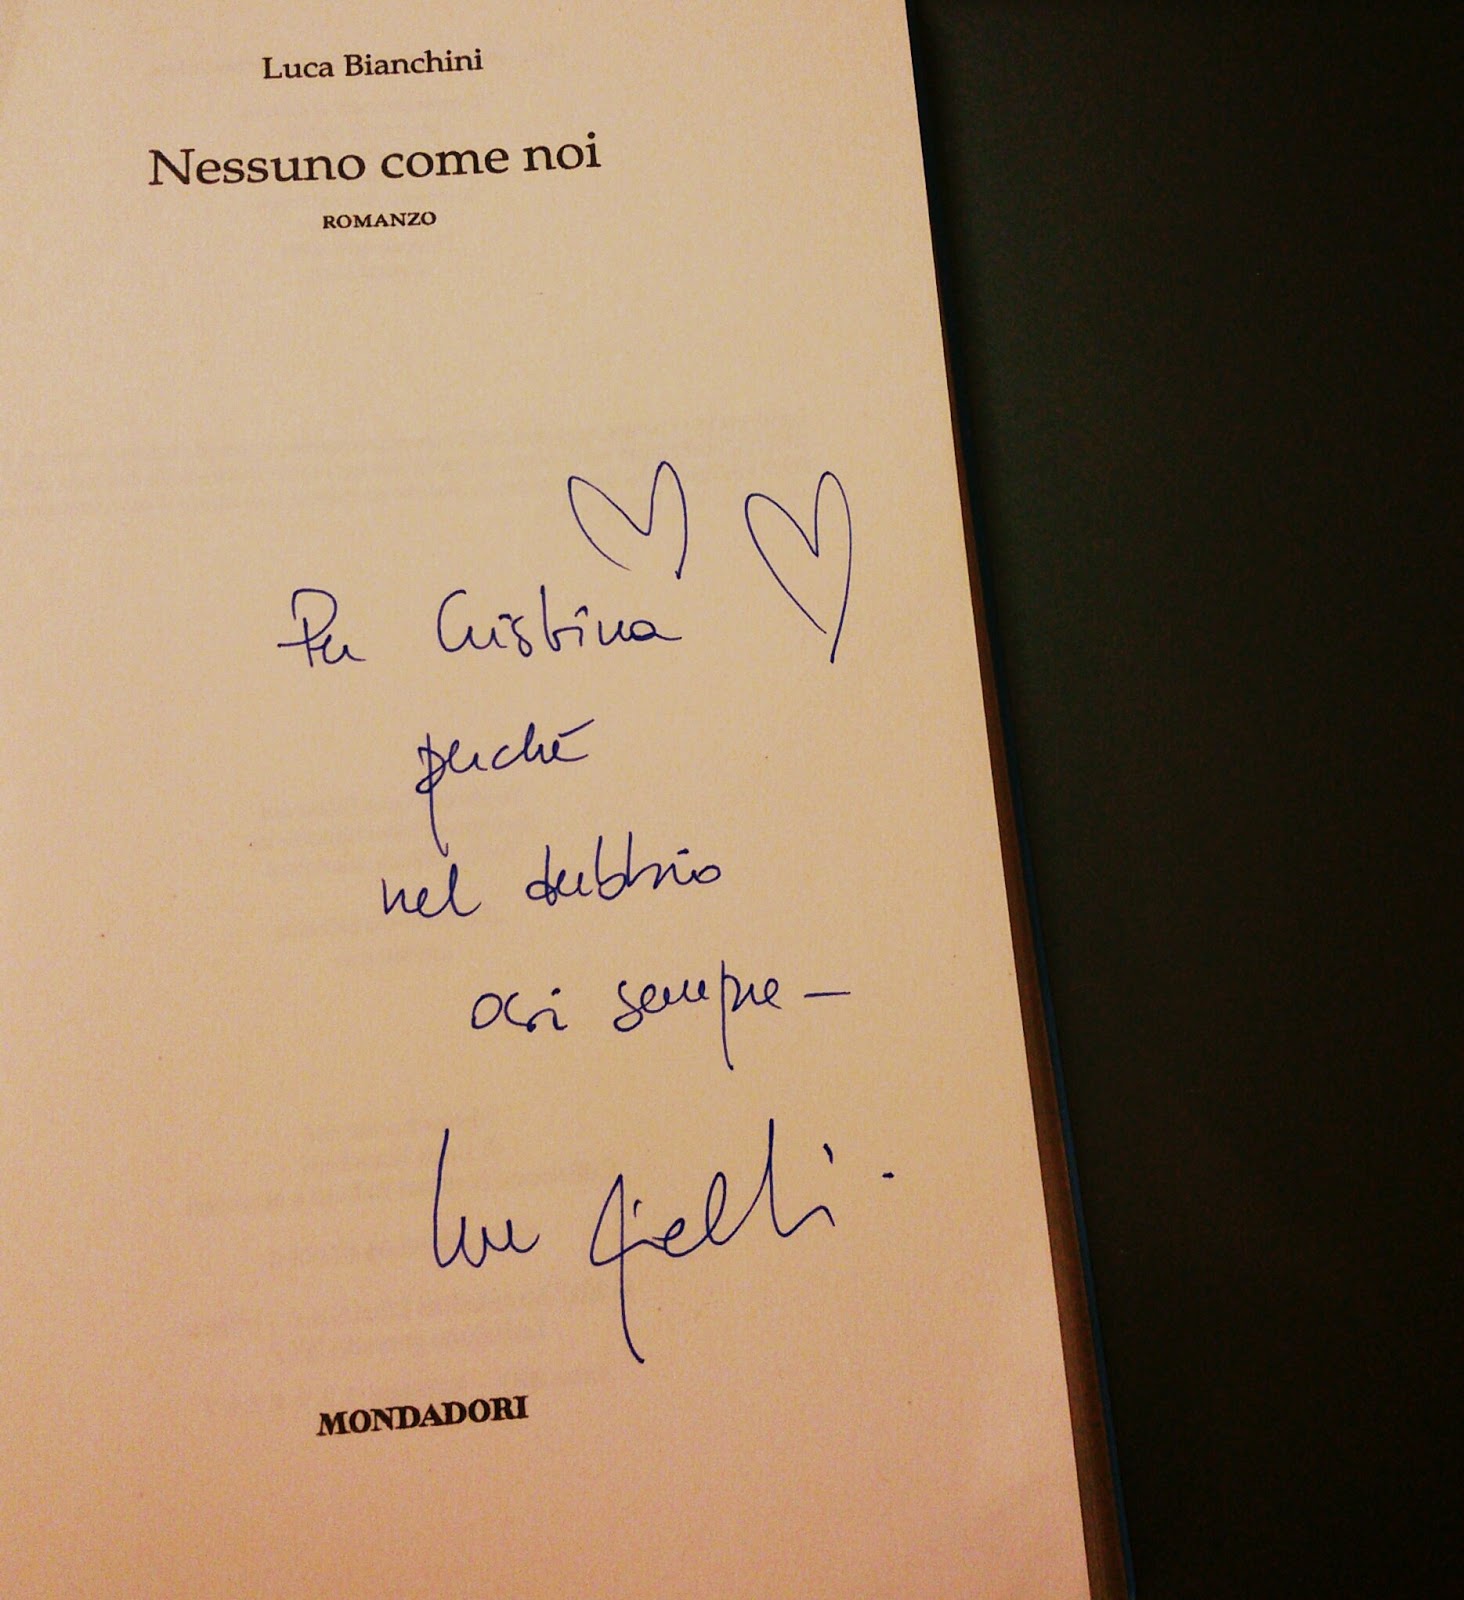 Luca Bianchini
Nessuno come noi
ROMANZO
Per Cristina
perché
nel dubbio
osi sempre —
MONDADORI